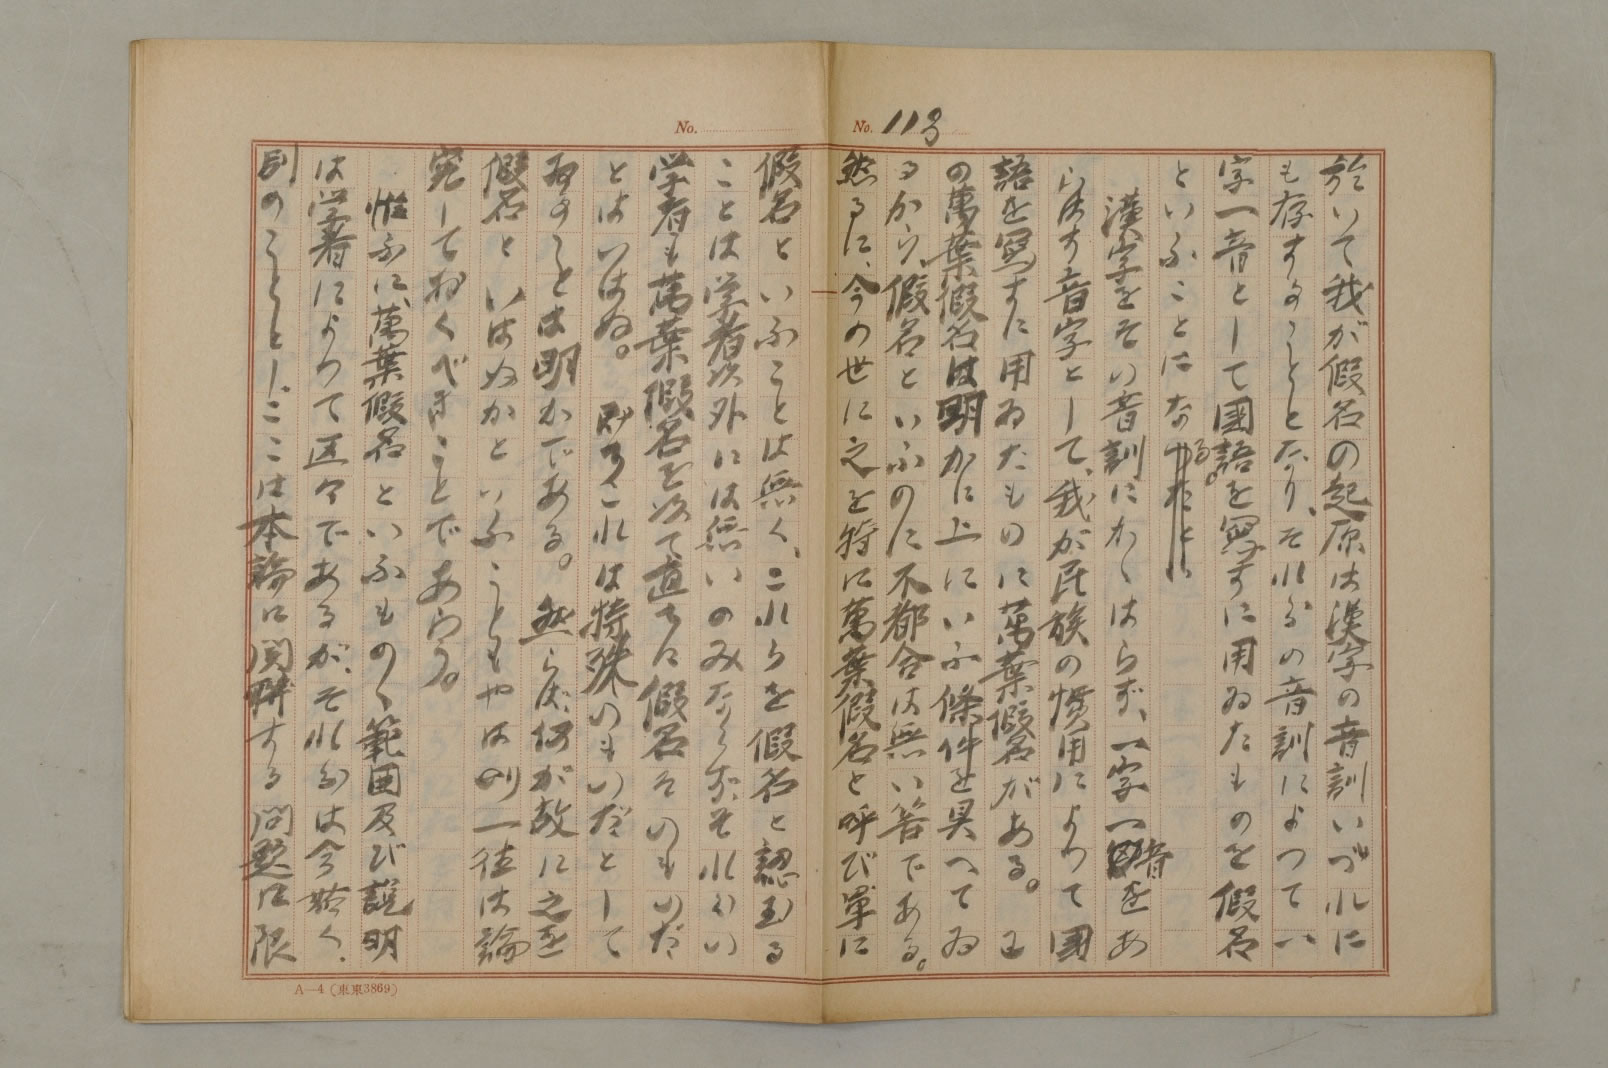 No. 113
於いて我が假名の起原は漢字の音訓いづれに
も存することとなり、それらの音訓によつて一
字一音として國語を寫すに用ゐたものを假名
といふことになる。
漢字をその音訓にかゝはらず、一字一音をあ
らはす音字として、我が民族の慣用によつて國
語を寫すに用ゐたものに萬葉假名がある。
の萬葉假名は明かに上にいふ條件を具へてゐ
るから、假名といふのに不都合は無い筈である。
然るに、今の世に之を特に萬葉假名と呼び單に
No.
假名といふことは無く、これを假名と認むる
ことは学者以外には無いのみならず、それらの
学者も萬葉假名を以て直ちに假名そのものだ
とはいはぬ。即ちこれは特殊のものだとして
ゐることは明かである。然らば、何が故に之を
假名といはぬかといふこともやはり一往は論
究しておくべきことであらう。
惟ふに、萬葉假名といふものゝ範囲及び説明
は学者によつて区々であるが、それらは今姑く、
別のこととし、ここは本論に関聯する問題に限
A—4 (東東3869)